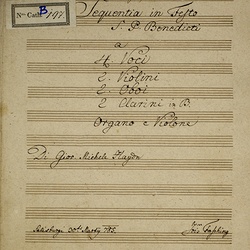 Nro: Cath: B 197.
Sequentia in Festo
S: P: Benedicti
a
4. Voci
2. Violini
2. Oboi
2 Clarini in B.
Organo e Violone
Di Giov: Michele Haydn
Salisburgi 30